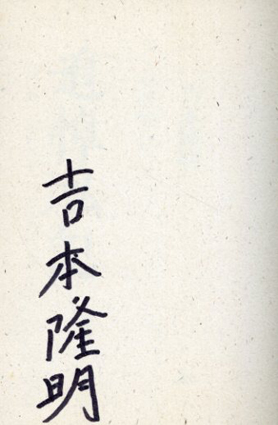 吉本隆明